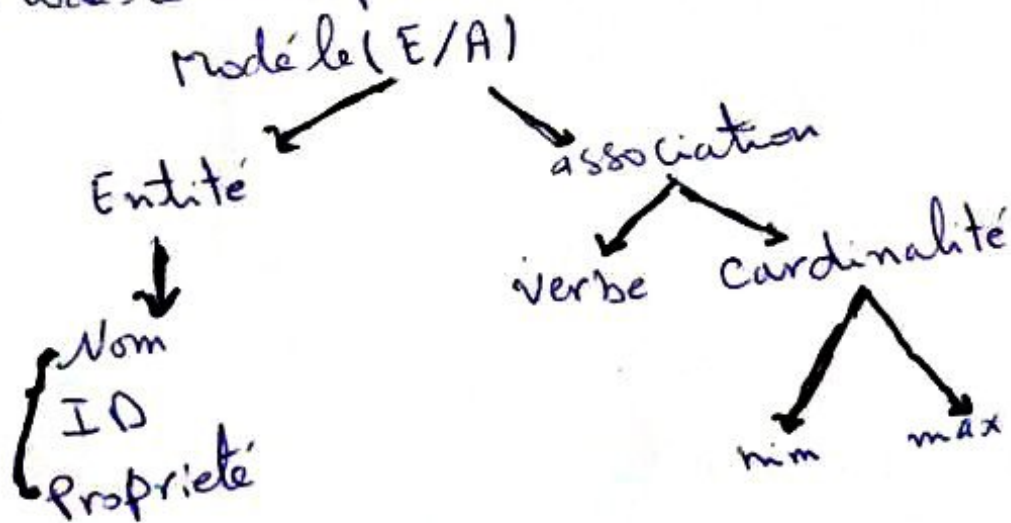 Modéle (E/A)
Entité
association
verbe
Cardinalité
Nom
ID
Proprieté
mim
max